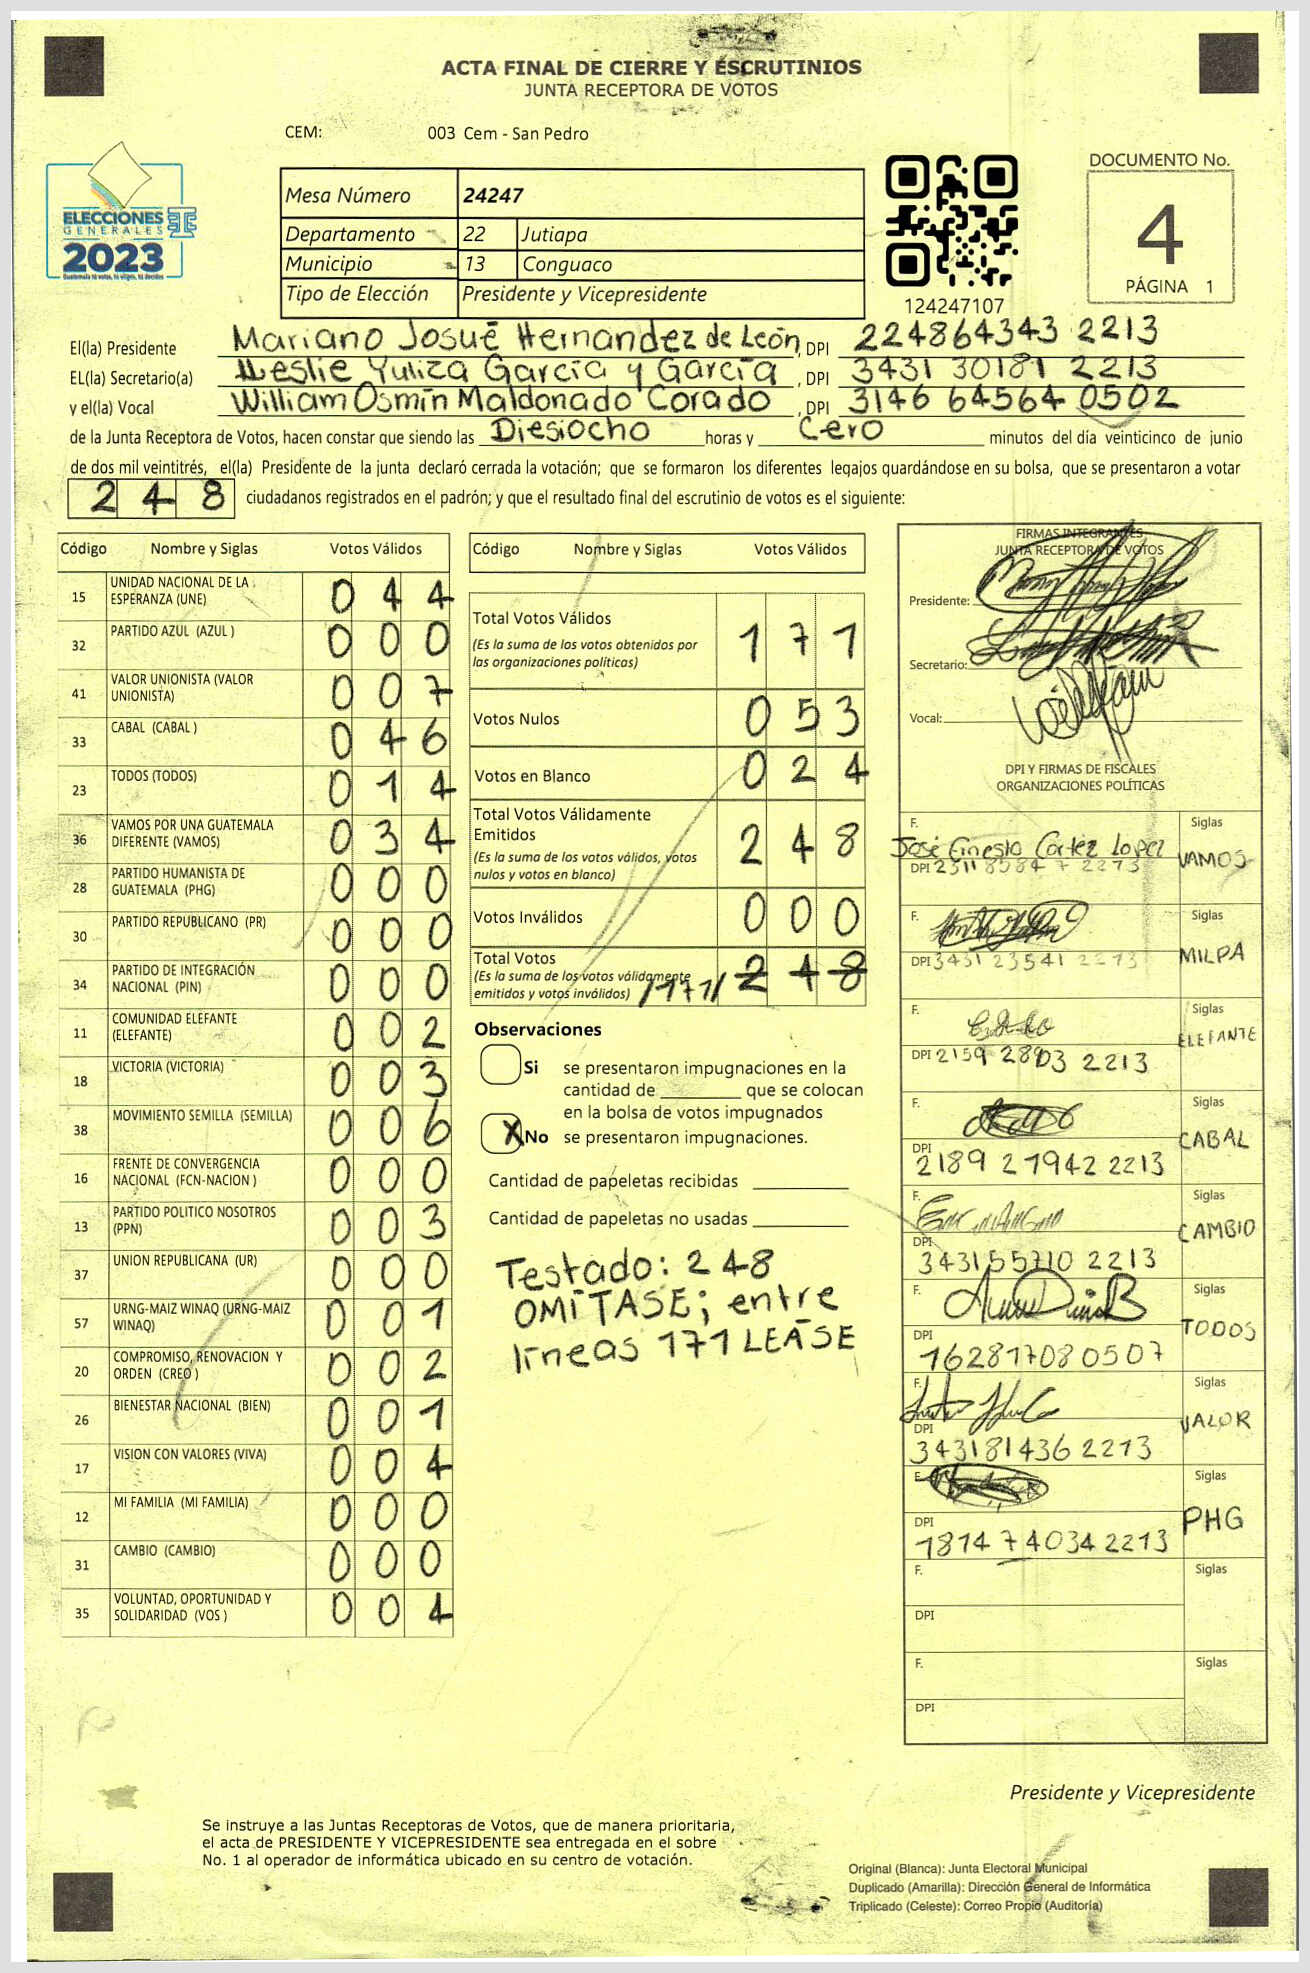 ACTA FINAL DE CIERRE Y ESCRUTINIOS
JUNTA RECEPTORA DE VOTOS
CEM: 003 Cem - San Pedro
ELECCIONES
GENERALES
2023
Guatemala tú votas, tú eliges, tú decides
Mesa Número 24247
Departamento 22 Jutiapa
Municipio 13 Conguaco
Tipo de Elección Presidente y Vicepresidente
124247107
DOCUMENTO No.
4
PÁGINA 1
El(la) Presidente Mariano Josué Hernandez de León, DPI 224864343 2213
EL(la) Secretario(a) Leslie Yuliza García y García, DPI 3431 30181 2213
y el(la) Vocal William Osmín Maldonado Corado, DPI 3146 64564 0502
de la Junta Receptora de Votos, hacen constar que siendo las Diesiocho horas y Cero minutos del día veinticinco de junio
de dos mil veintitrés, el(la) Presidente de la junta declaró cerrada la votación; que se formaron los diferentes legajos guardándose en su bolsa, que se presentaron a votar
248 ciudadanos registrados en el padrón; y que el resultado final del escrutinio de votos es el siguiente:
Código Nombre y Siglas Votos Válidos
15 UNIDAD NACIONAL DE LA ESPERANZA (UNE) 044
32 PARTIDO AZUL (AZUL ) 000
41 VALOR UNIONISTA (VALOR UNIONISTA) 007
33 CABAL (CABAL ) 046
23 TODOS (TODOS) 014
36 VAMOS POR UNA GUATEMALA DIFERENTE (VAMOS) 034
28 PARTIDO HUMANISTA DE GUATEMALA (PHG) 000
30 PARTIDO REPUBLICANO (PR) 000
34 PARTIDO DE INTEGRACIÓN NACIONAL (PIN) 000
11 COMUNIDAD ELEFANTE (ELEFANTE) 002
18 VICTORIA (VICTORIA) 003
38 MOVIMIENTO SEMILLA (SEMILLA) 006
16 FRENTE DE CONVERGENCIA NACIONAL (FCN-NACION ) 000
13 PARTIDO POLITICO NOSOTROS (PPN) 003
37 UNION REPUBLICANA (UR) 000
57 URNG-MAIZ WINAQ (URNG-MAIZ WINAQ) 001
20 COMPROMISO, RENOVACION Y ORDEN (CREO ) 002
26 BIENESTAR NACIONAL (BIEN) 001
17 VISION CON VALORES (VIVA) 004
12 MI FAMILIA (MI FAMILIA) 000
31 CAMBIO (CAMBIO) 000
35 VOLUNTAD, OPORTUNIDAD Y SOLIDARIDAD (VOS ) 004
Código Nombre y Siglas Votos Válidos
Total Votos Válidos 171
(Es la suma de los votos obtenidos por
las organizaciones políticas)
Votos Nulos 053
Votos en Blanco 024
Total Votos Válidamente
Emitidos 248
(Es la suma de los votos válidos, votos
nulos y votos en blanco)
Votos Inválidos 000
Total Votos 248
(Es la suma de los votos válidamente
emitidos y votos inválidos) /171/
Observaciones
Si se presentaron impugnaciones en la
cantidad de ________ que se colocan
en la bolsa de votos impugnados
X No se presentaron impugnaciones.
Cantidad de papeletas recibidas
Cantidad de papeletas no usadas
Testado: 248
OMITASE; entre
líneas 171 LEASE
FIRMAS INTEGRANTES
JUNTA RECEPTORA DE VOTOS
Presidente:
Secretario:
Vocal:
DPI Y FIRMAS DE FISCALES
ORGANIZACIONES POLÍTICAS
F. José Ernesto Cortez Lopez Siglas
DPI VAMOS
F. Siglas
DPI 3431 23541 2213 MILPA
F. Siglas
DPI 2159 2803 2213 ELEFANTE
F. Siglas
DPI 2189 27942 2213 CABAL
F. Siglas
DPI 343155710 2213 CAMBIO
F. Siglas
DPI 162817080507 TODOS
F. Siglas
DPI 343181436 2213 VALOR
F. Siglas
DPI 1814 74034 2213 PHG
F. Siglas
DPI
F. Siglas
DPI
Presidente y Vicepresidente
Se instruye a las Juntas Receptoras de Votos, que de manera prioritaria,
el acta de PRESIDENTE Y VICEPRESIDENTE sea entregada en el sobre
No. 1 al operador de informática ubicado en su centro de votación.
Original (Blanca): Junta Electoral Municipal
Duplicado (Amarilla): Dirección General de Informática
Triplicado (Celeste): Correo Propio (Auditoría)